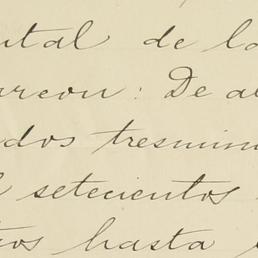 ental de la
arcon: De a
dos tresmin
setecientos
tos hasta